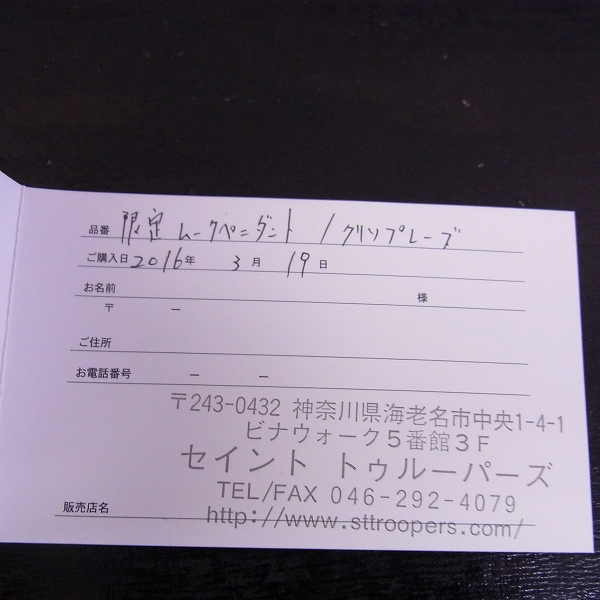 品番 限定 ムークペンダント / クリソプレーズ
ご購入日 2016年 3月 19日
お名前 様
〒 ー
ご住所
お電話番号 ー ー
〒243-0432 神奈川県海老名市中央1-4-1
ビナウォーク5番館3F
セイント トゥルーパーズ
TEL/FAX 046-292-4079
販売店名 http://www.sttroopers.com/